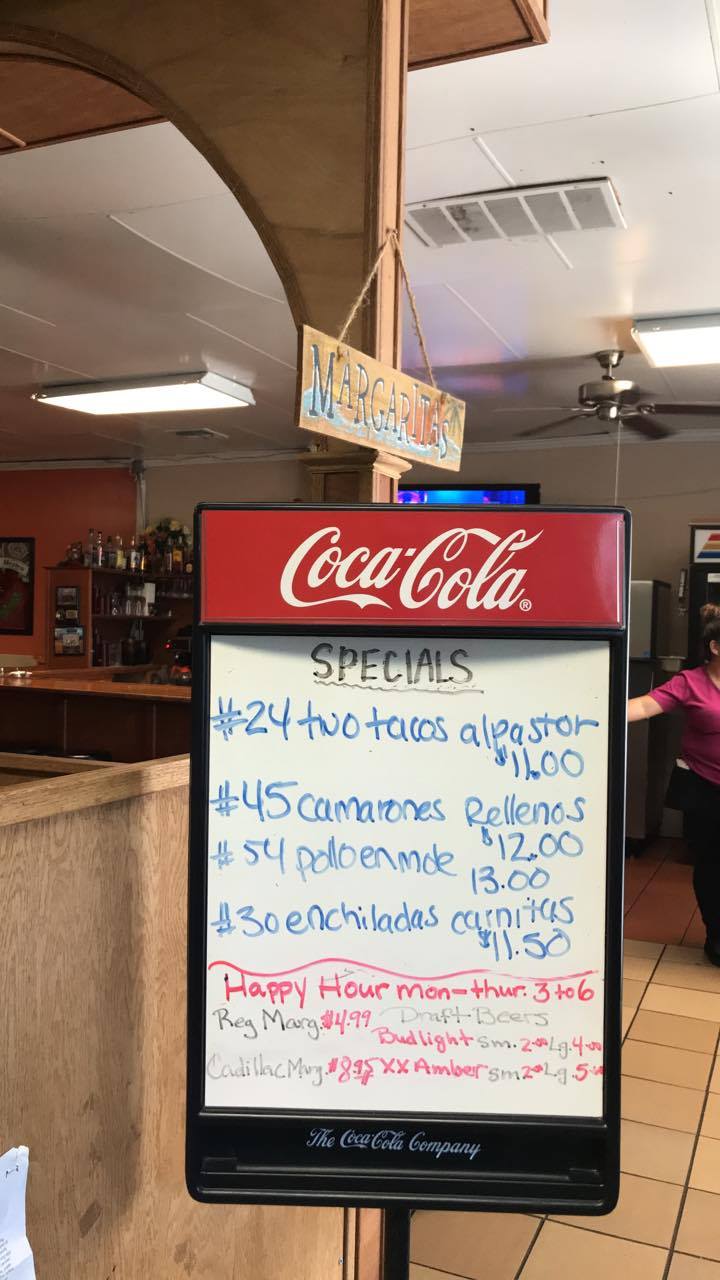 MARGARITAS
Coca-Cola®
SPECIALS
#24 two tacos al pastor
$11.00
#45 camarones Rellenos
$12.00
#54 pollo en mole
13.00
#30 enchiladas carnitas
$11.50
Happy Hour mon-thur. 3 to 6
Reg Marg. $4.99 Draft Beers
Bud light sm. 2.00 Lg. 4.00
Cadillac Marg. $8.95 XX Amber sm 2.00 Lg. 5.00
The Coca-Cola Company